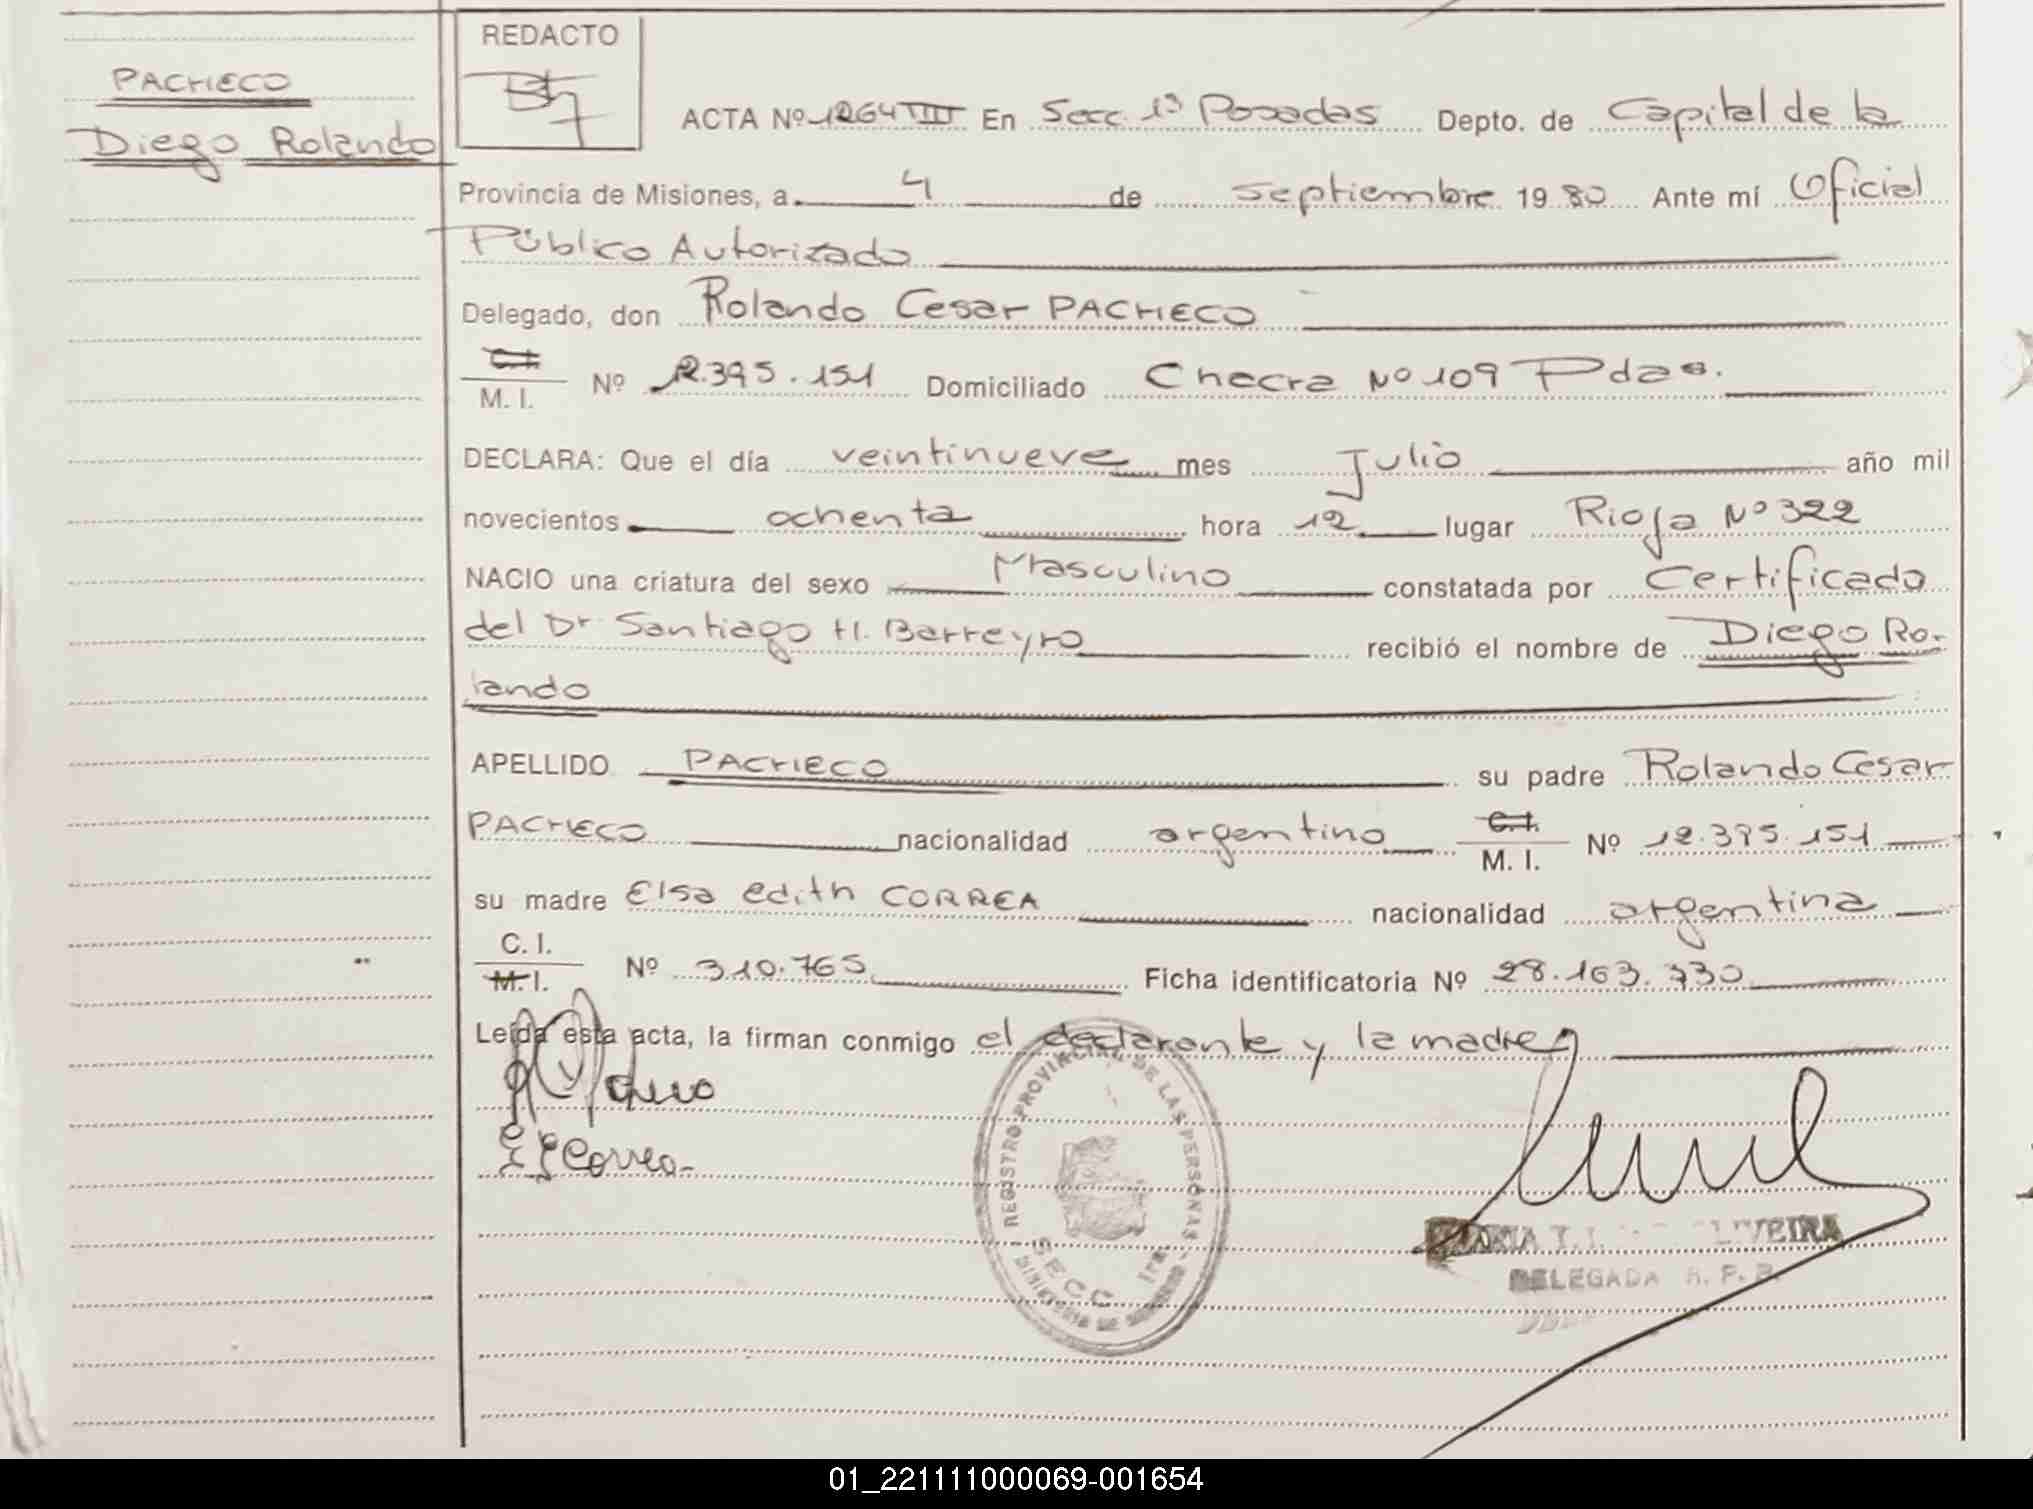 PACHECO
Diego Rolando
REDACTO
ACTA Nº 1264 III En Secc. 1ª Posadas Depto. de Capital de la
Provincia de Misiones, a 4 de septiembre 1980 Ante mí Oficial
Público Autorizado
Delegado, don Rolando Cesar PACHECO
C.I.
M. I. Nº 12.395.151 Domiciliado Chacra Nº 109 Pdas.
DECLARA: Que el día veintinueve mes Julio año mil
novecientos ochenta hora 12 lugar Rioja Nº 322
NACIO una criatura del sexo Masculino constatada por Certificado
del Dr Santiago H. Barreyro recibió el nombre de Diego Ro-
lando
APELLIDO PACHECO su padre Rolando Cesar
PACHECO nacionalidad argentino C.I. M. I. Nº 12.395.151
su madre Elsa edith CORREA nacionalidad argentina
C. I.
M. I. Nº 310.765 Ficha identificatoria Nº 28.163.730
Leída esta acta, la firman conmigo el declarante y la madre
E E Correa
REGISTRO PROVINCIAL DE LAS PERSONAS
SECC 1ra
MINISTERIO DE GOBIERNO
DELEGADA R. P. P.
01_221111000069-001654